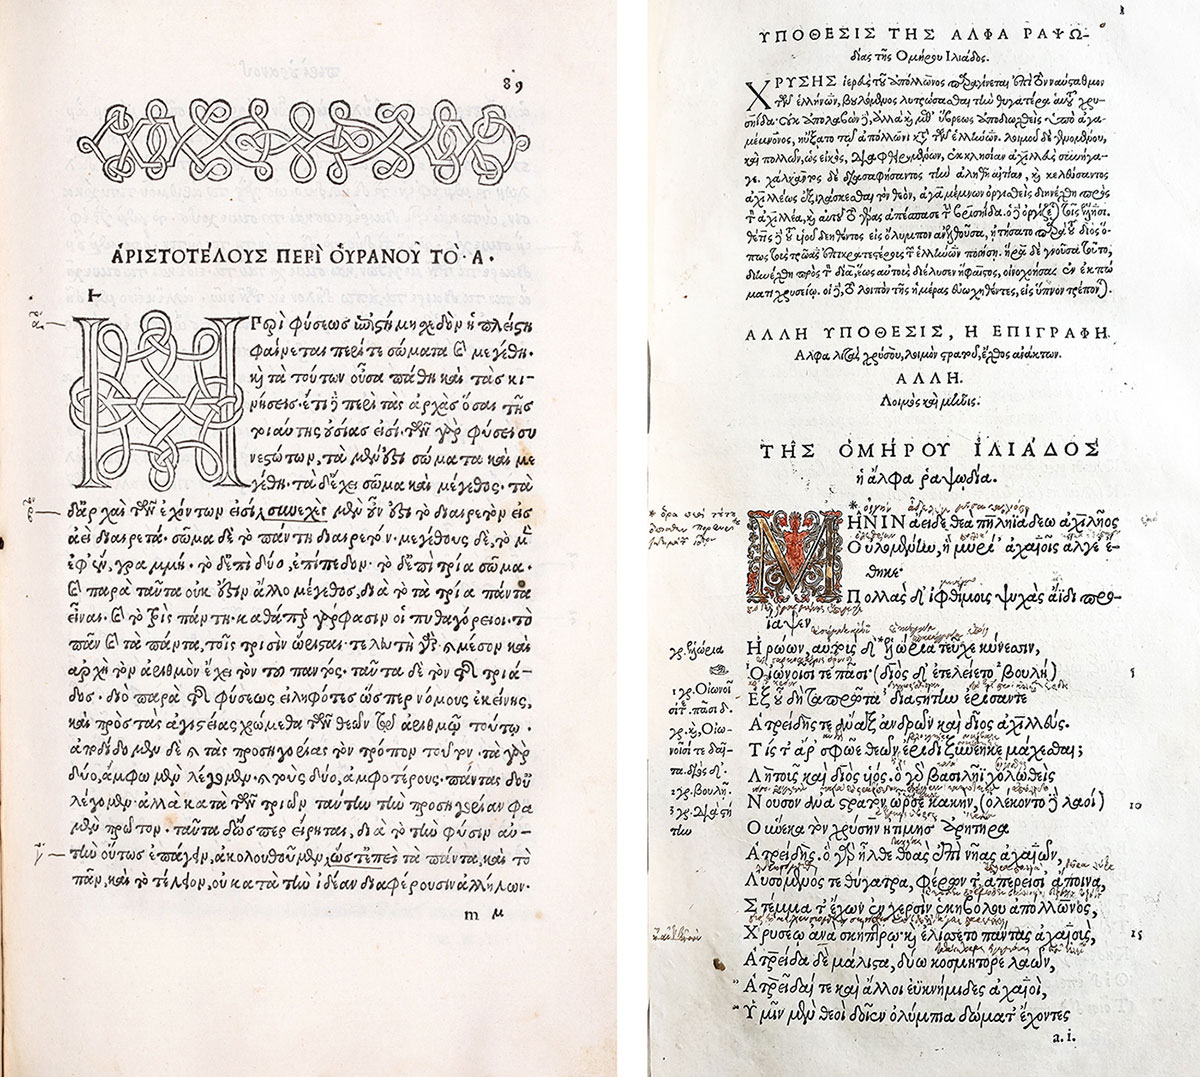 89
ἈΡΙΣΤΟΤΈΛΟΥΣ ΠΕΡῚ ὈΥΡΑΝΟΥ͂ ΤῸ·Α·
Η Περὶ φύσεως ἐπιστήμη σχεδὸν ἡ πλείστη
φαίνεται περί τε σώματα καὶ μεγέθη·
καὶ τὰ τούτων οὖσα πάθη καὶ τὰς κι-
νήσεις· ἔτι δὲ περὶ τὰς ἀρχὰς ὅσαι τῆς
τοιαύτης οὐσίας εἰσί· τῶν γὰρ φύσει συ
νεστώτων, τὰ μέν ἐστι σώματα καὶ με
γέθη· τὰ δ' ἔχει σῶμα καὶ μέγεθος· τὰ
δ' ἀρχαὶ τῶν ἐχόντων εἰσί. συνεχὲς μὲν οὖν ἐστι τὸ διαιρετὸν εἰς
ἀεὶ διαιρετά· σῶμα δὲ τὸ πάντη διαιρετόν· μεγέθους δὲ, τὸ μὲν
ἐφ' ἓν, γραμμή· τὸ δ' ἐπὶ δύο, ἐπίπεδον· τὸ δ' ἐπὶ τρία σῶμα·
καὶ παρὰ ταῦτα οὐκ ἔστιν ἄλλο μέγεθος, διὰ τὸ τὰ τρία πάντα
εἶναι· καὶ τὸ τρὶς πάντη· καθάπερ γάρ φασιν οἱ πυθαγόρειοι· τὸ
πᾶν καὶ τὰ πάντα, τοῖς τρισὶν ὥρισται· τελευτὴ γὰρ καὶ μέσον καὶ
ἀρχὴ τὸν ἀριθμὸν ἔχει τὸν τοῦ παντός· ταῦτα δὲ τὸν τῆς τριά-
δος· διὸ παρὰ τῆς φύσεως εἰληφότες ὥσπερ νόμους ἐκείνης,
καὶ πρὸς τὰς ἁγιστείας χρώμεθα τῶν θεῶν τῷ ἀριθμῷ τούτῳ·
ἀποδίδομεν δὲ καὶ τὰς προσηγορίας τὸν τρόπον τοῦτον· τὰ γὰρ
δύο, ἄμφω μὲν λέγομεν· καὶ τοὺς δύο, ἀμφοτέρους· πάντας δ' οὐ
λέγομεν· ἀλλὰ κατὰ τῶν τριῶν ταύτην τὴν προσηγορίαν φα
μὲν πρῶτον· ταῦτα δ' ὥσπερ εἴρηται, διὰ τὸ τὴν φύσιν αὐ-
τὴν οὕτως ἐπάγειν, ἀκολουθοῦμεν, ὥστ' ἐπεὶ τὰ πάντα, καὶ τὸ
πᾶν, καὶ τὸ τέλειον, οὐ κατὰ τὴν ἰδέαν διαφέρουσιν ἀλλήλων·
m μ
1
ΥΠΟΘΕΣΙΣ ΤΗΣ ΑΛΦΑ ΡΑΨΩ-
δίας τῆς Ομήρου Ιλιάδος.
ΧΡΥΣΗΣ ἱερεὺς τοῦ ἀπόλλωνος παραγίνεται ἐπὶ τὸν ναύσταθμον
τῶν ἑλλήνων, βουλόμενος λυτρώσασθαι τὴν θυγατέρα αὐτοῦ χρυ-
σηίδα· οὐκ ἀπολαβὼν δὲ, ἀλλὰ καὶ μεθ' ὕβρεως ἀποδιωχθεὶς ὑπὸ ἀγα-
μέμνονος, ηὔξατο τῷ ἀπόλλωνι κατὰ τῶν ἑλλήνων. λοιμοῦ δὲ γενομένου,
καὶ πολλῶν, ὡς εἰκὸς, διαφθειρομένων, ἐκκλησίαν ἀχιλλεὺς συνήγα-
γε. χάλκαντος δὲ διασαφήσαντος τὴν ἀληθῆ αἰτίαν, καὶ κελεύσαντος
ἀχιλλέως ἐξιλάσκεσθαι τὸν θεὸν, ἀγαμέμνων ὀργισθεὶς διηνέχθη πρὸς
τὸν ἀχιλλέα, καὶ αὐτοῦ τὸ γέρας ἀπέσπασε τὴν βρισηίδα. ὁ δὲ ὀργισθεὶς
θέτις δὲ τοῦ υἱοῦ δεηθέντος εἰς ὄλυμπον ἀνελθοῦσα, ᾐτήσατο παρὰ τοῦ διὸς ὅ-
πως τοὺς τρῶας ἐπικρατεστέρους τῶν ἑλλήνων ποιήσῃ. ἥρα δὲ γνοῦσα τοῦτο,
διηνέχθη πρὸς τὸν δία, ἕως αὐτοὺς διέλυσεν ἥφαιστος, οἰνοχοήσας ἐν ἐκπώ
ματι χρυσείῳ. οἱ δὲ, τὸ λοιπὸν τῆς ἡμέρας εὐωχηθέντες, εἰς ὕπνον τρέπονται.
ΑΛΛΗ ΥΠΟΘΕΣΙΣ, Η ΕΠΙΓΡΑΦΗ.
Αλφα λιτὰς χρύσου, λοιμὸν στρατοῦ, ἔχθος ἀνάκτων.
ΑΛΛΗ.
Λοιμὸς καὶ μῆνις.
ΤΗ͂Σ ὉΜΉΡΟΥ ἸΛΙΆΔΟΣ
ἡ ἄλφα ῥαψῳδία.
ΜΗΝΙΝ ἄειδε θεὰ πηληϊάδεω ἀχιλῆος
Οὐλομένην, ἣ μυρί' ἀχαιοῖς ἄλγε' ἔ-
θηκε·
Πολλὰς δ' ἰφθίμους ψυχὰς ἄϊδι προ-
ΐαψεν
Ηρώων, αὐτοὺς δὲ ἑλώρια τεῦχε κύνεσσιν,
Οἰωνοῖσί τε πᾶσι· (διὸς δ' ἐτελείετο βουλή)
5
Εξ οὗ δὴ τὰ πρῶτα διαστήτην ἐρίσαντε
Ἀτρείδης τε ἄναξ ἀνδρῶν καὶ δῖος ἀχιλλεύς.
Τίς τ' ἄρ σφῶε θεῶν ἔριδι ξυνέηκε μάχεσθαι;
Λητοῦς καὶ διὸς υἱός. ὁ γὰρ βασιλῆϊ χολωθεὶς
Νοῦσον ἀνὰ στρατὸν ὦρσε κακήν, (ὀλέκοντο δὲ λαοί)
10
Οὕνεκα τὸν χρύσην ἠτίμησ' ἀρητῆρα
Ἀτρείδης. ὁ γὰρ ἦλθε θοὰς ἐπὶ νῆας ἀχαιῶν,
Λυσόμενός τε θύγατρα, φέρων τ' ἀπερείσι' ἄποινα,
Στέμμα τ' ἔχων ἐν χερσὶν ἑκηβόλου ἀπόλλωνος,
Χρυσέῳ ἀνὰ σκήπτρῳ· καὶ ἐλίσσετο πάντας ἀχαιοὺς,
15
Ἀτρείδα δὲ μάλιστα, δύω κοσμήτορε λαῶν,
Ἀτρεῖδαί τε καὶ ἄλλοι ἐϋκνήμιδες ἀχαιοὶ,
Ὑμῖν μὲν θεοὶ δοῖεν ὀλύμπια δώματ' ἔχοντες
a.i.
γρ. ἑλώρια
γρ. Οἰωνοῖ
σί τε πᾶσι δ.
γρ. καὶ, Οἰω-
νοῖσί τε δαῖ-
τα. διὸς δ'.
γρ. βουλῇ.
γρ. διαστή
την